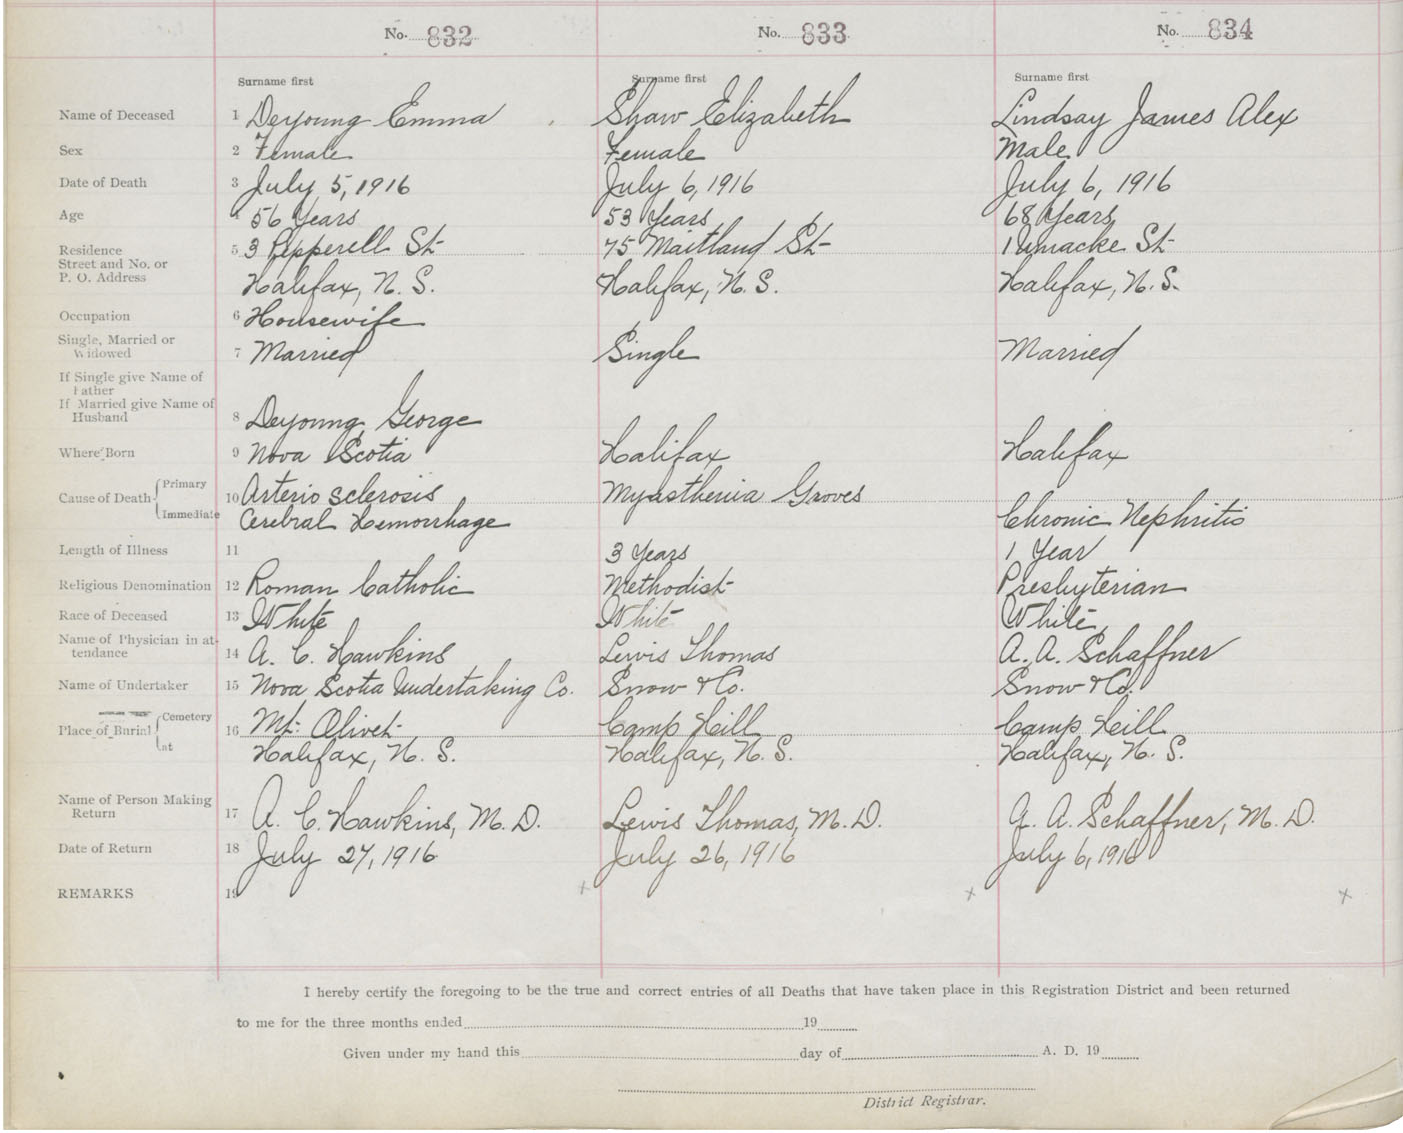 No. 832 No. 833 No. 834
Surname first Surname first Surname first
Name of Deceased 1 Deyoung Emma Shaw Elizabeth Lindsay James Alex
Sex 2 Female Female Male
Date of Death 3 July 5, 1916 July 6, 1916 July 6, 1916
Age 4 56 Years 53 Years 68 Years
Residence 5 3 Pepperell St 75 Maitland St 1 Uniacke St
Street and No. or
P. O. Address Halifax, N. S. Halifax, N. S. Halifax, N. S.
Occupation 6 Housewife
Single, Married or
Widowed 7 Married Single Married
If Single give Name of
Father
If Married give Name of
Husband 8 Deyoung George
Where Born 9 Nova Scotia Halifax Halifax
Cause of Death Primary 10 Arterio sclerosis Myasthenia Groves
Immediate Cerebral Hemorrhage Chronic Nephritis
Length of Illness 11 3 Years 1 Year
Religious Denomination 12 Roman Catholic Methodist Presbyterian
Race of Deceased 13 White White White
Name of Physician in at-
tendance 14 A. C. Hawkins Lewis Thomas A. A. Schaffner
Name of Undertaker 15 Nova Scotia Undertaking Co. Snow & Co. Snow & Co.
Place of Burial Cemetery 16 Mt. Olivet Camp Hill Camp Hill
at Halifax, N. S. Halifax, N. S. Halifax, N. S.
Name of Person Making
Return 17 A. C. Hawkins, M. D. Lewis Thomas, M. D. A. A. Schaffner, M. D.
Date of Return 18 July 27, 1916 July 26, 1916 July 6, 1916
REMARKS 19 x x x
I hereby certify the foregoing to be the true and correct entries of all Deaths that have taken place in this Registration District and been returned
to me for the three months ended 19
Given under my hand this day of A. D. 19
District Registrar.